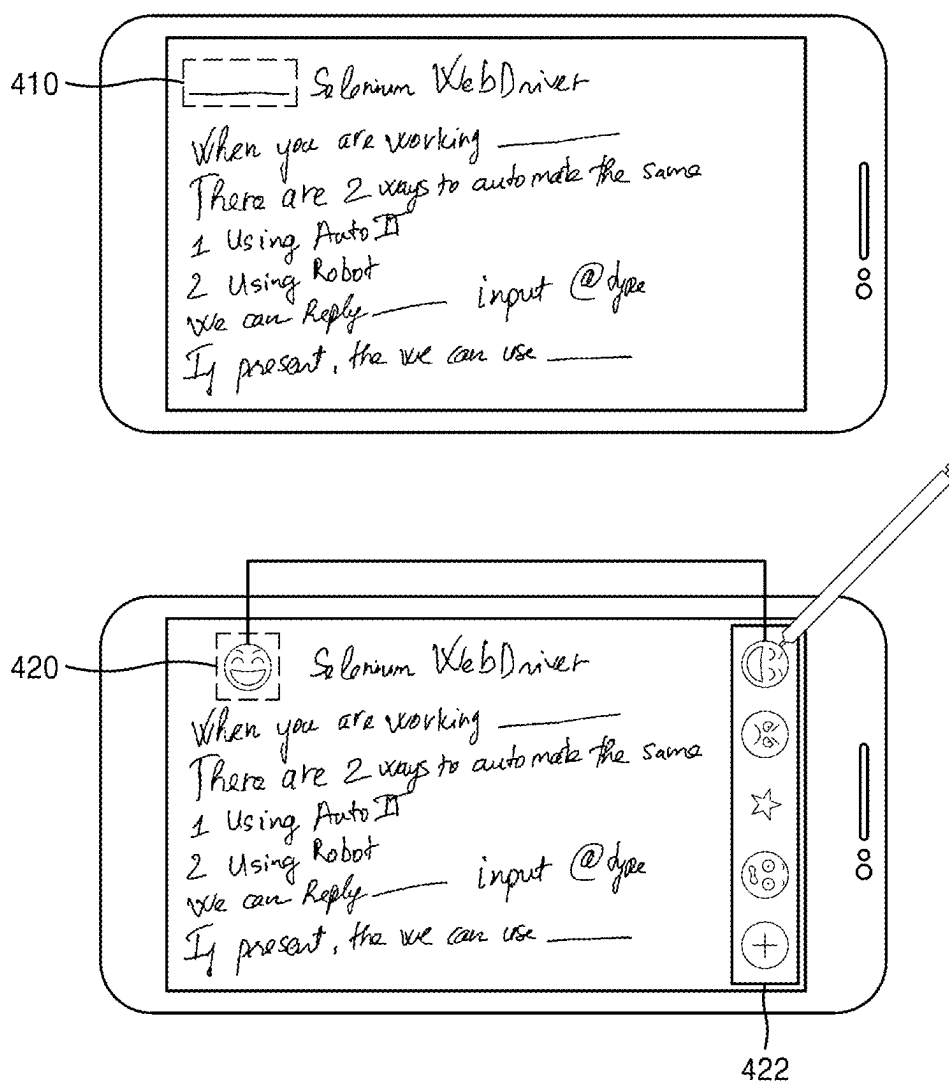 410
______ Selenium WebDriver
When you are working ______
There are 2 ways to automate the same
1 Using Auto IT
2 Using Robot
We can Reply ______ input @type
If present, the we can use ______
420
Selenium WebDriver
When you are working ______
There are 2 ways to automate the same
1 Using Auto IT
2 Using Robot
We can Reply ______ input @type
If present, the we can use ______
422